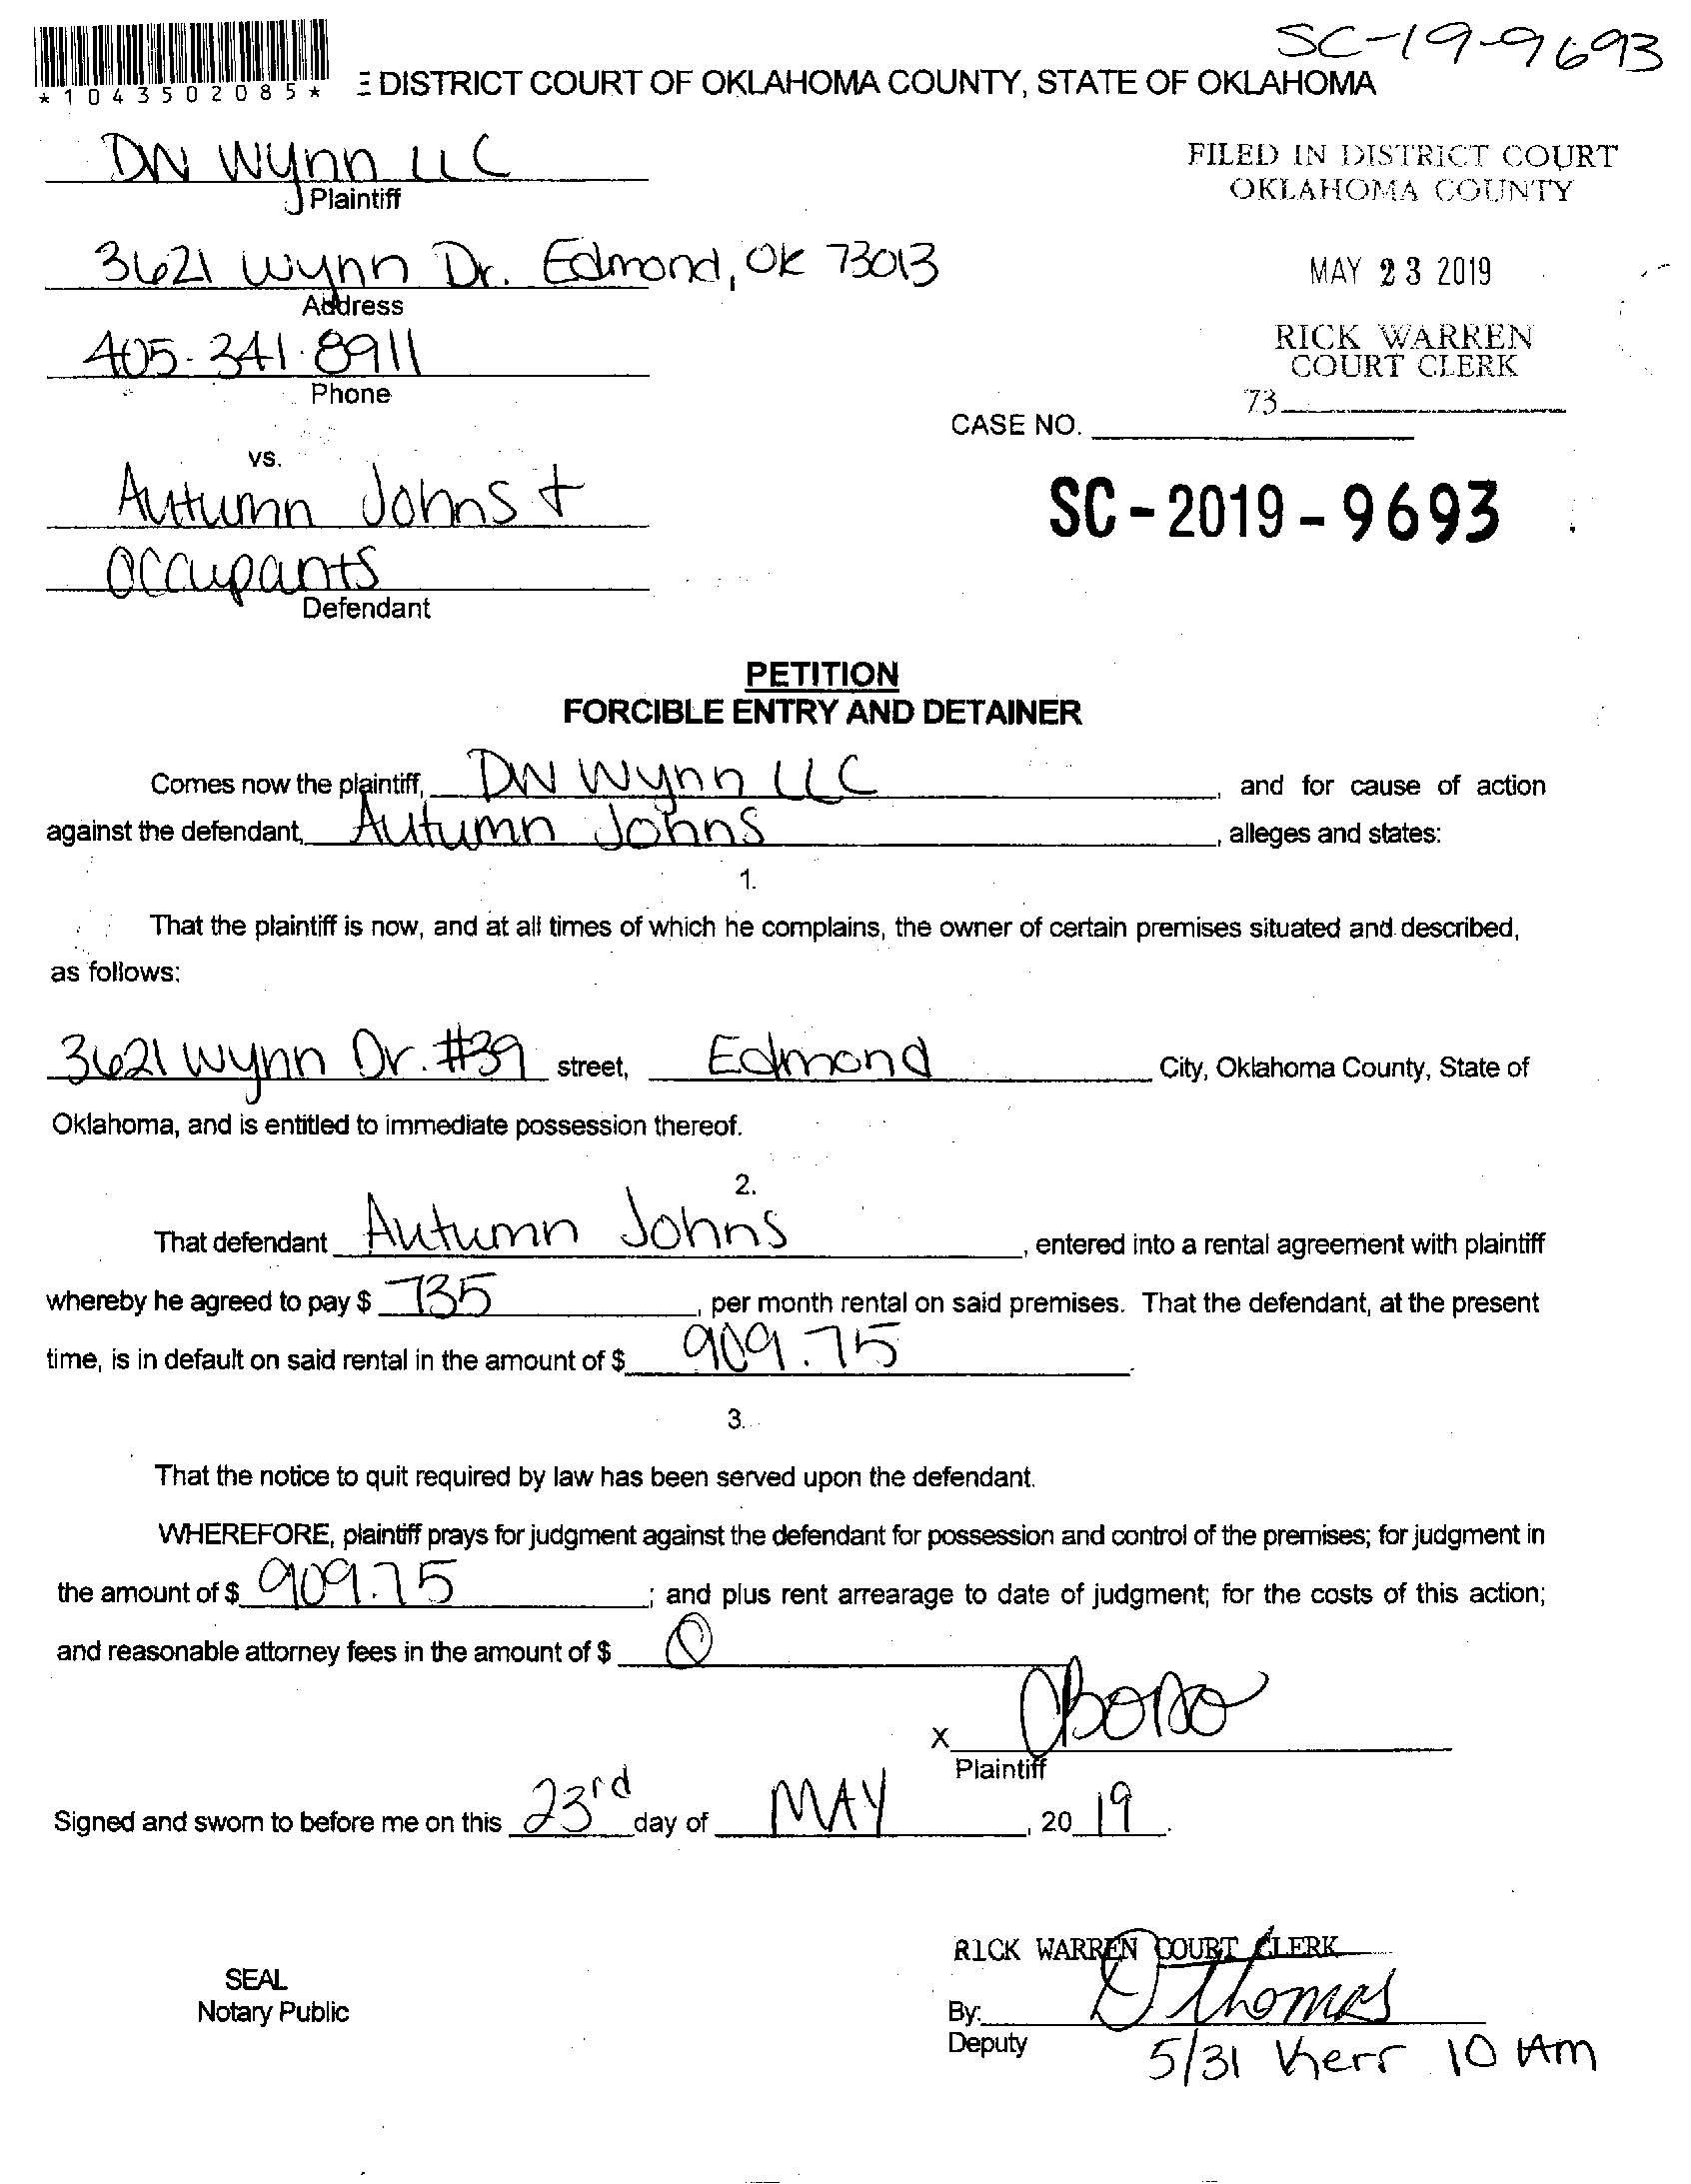 SC-19-9693
*1043502085*
E DISTRICT COURT OF OKLAHOMA COUNTY, STATE OF OKLAHOMA
DN Wynn LLC
Plaintiff
FILED IN DISTRICT COURT
OKLAHOMA COUNTY
3621 Wynn Dr. Edmond, OK 73013
Address
MAY 23 2019
405-341-8911
Phone
RICK WARREN
COURT CLERK
73
CASE NO.
vs.
Autumn Johns +
SC-2019-9693
Occupants
Defendant
PETITION
FORCIBLE ENTRY AND DETAINER
Comes now the plaintiff, DW Wynn LLC, and for cause of action
against the defendant, Autumn Johns, alleges and states:
1.
That the plaintiff is now, and at all times of which he complains, the owner of certain premises situated and described,
as follows:
3621 Wynn Dr. #39 street, Edmond City, Oklahoma County, State of
Oklahoma, and is entitled to immediate possession thereof.
2.
That defendant Autumn Johns, entered into a rental agreement with plaintiff
whereby he agreed to pay $ 735, per month rental on said premises. That the defendant, at the present
time, is in default on said rental in the amount of $ 909.75.
3.
That the notice to quit required by law has been served upon the defendant.
WHEREFORE, plaintiff prays for judgment against the defendant for possession and control of the premises; for judgment in
the amount of $ 909.75; and plus rent arrearage to date of judgment; for the costs of this action;
and reasonable attorney fees in the amount of $ 0
X
Plaintiff
Signed and sworn to before me on this 23rd day of MAY, 20 19.
RICK WARREN COURT CLERK
SEAL
Notary Public
By: D Thomas
Deputy
5/31 Kerr 10 AM